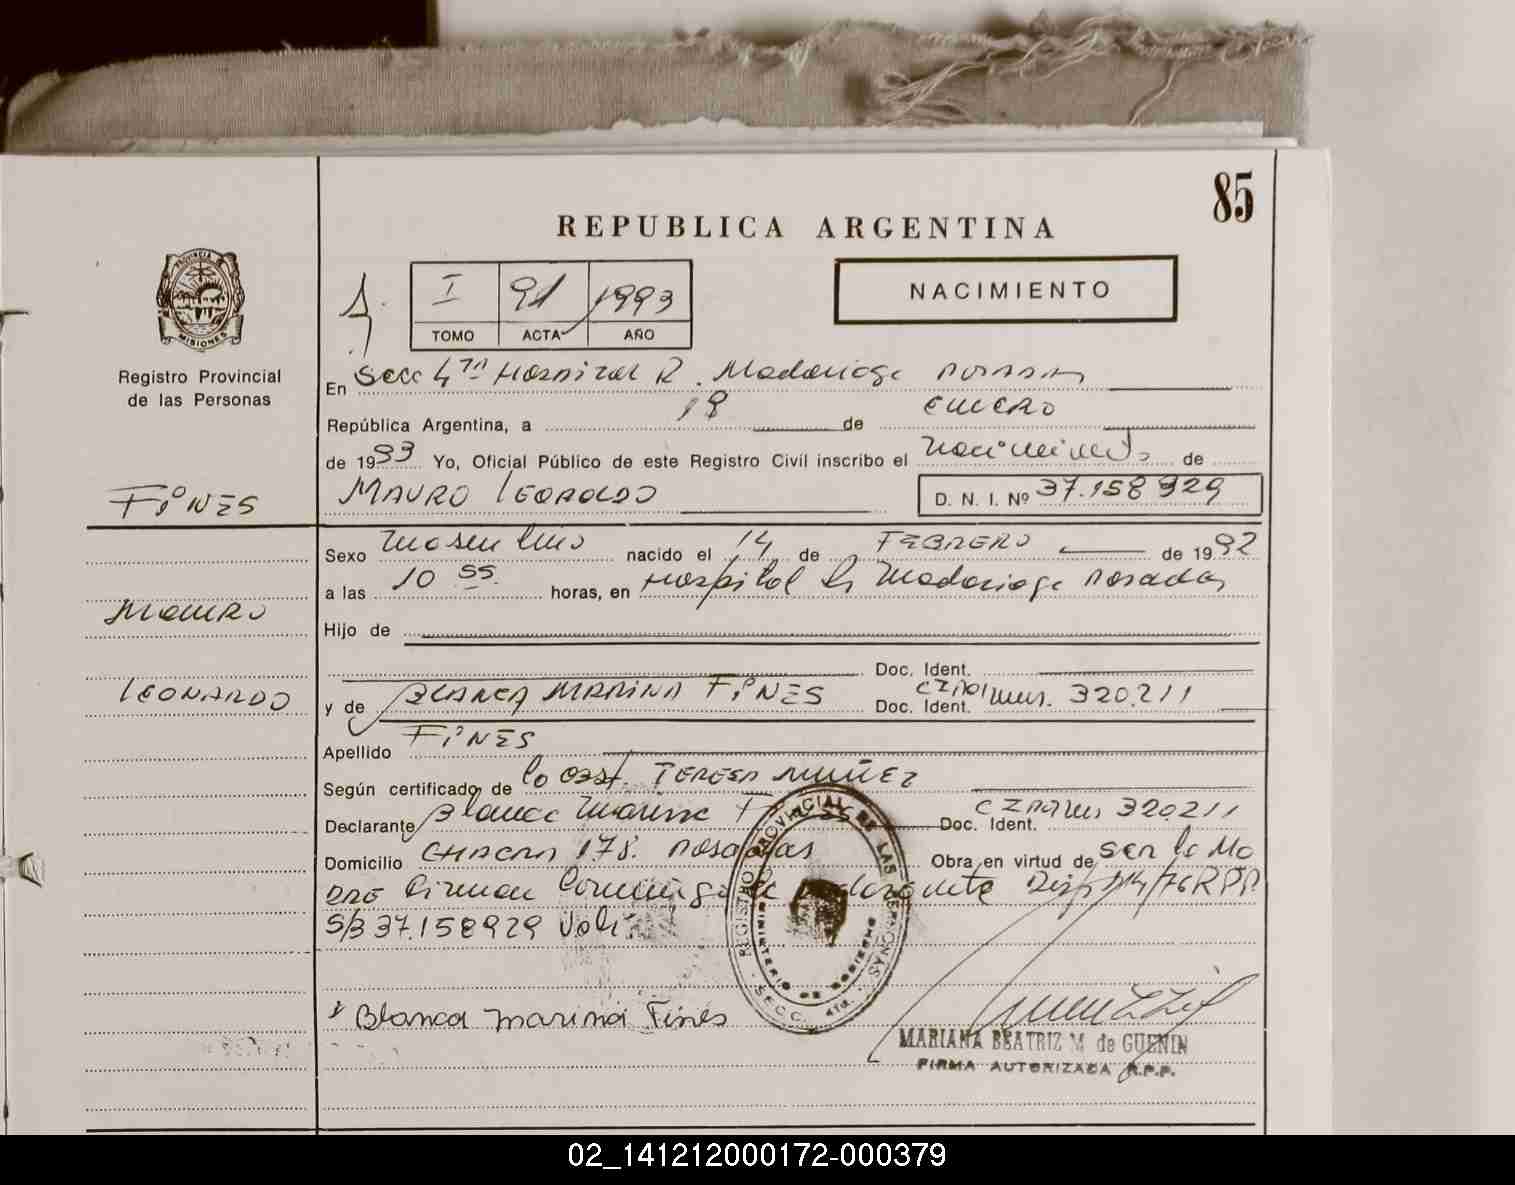 85
REPUBLICA ARGENTINA
PROVINCIA DE
MISIONES
I 91 1993
TOMO ACTA AÑO
NACIMIENTO
Registro Provincial
de las Personas
En Secc 4ta Hospital R. Madariaga Posadas
República Argentina, a 18 de ENERO
de 1993 Yo, Oficial Público de este Registro Civil inscribo el nacimiento de
FINES
MAURO LEOPOLDO D. N. I. Nº 37.158929
Sexo masculino nacido el 14 de FEBRERO de 1992
a las 10 55 horas, en Hospital R. Madariaga Posadas
MAURO
Hijo de
Doc. Ident.
LEONARDO
y de BLANCA MARINA FINES Doc. Ident. 320.211
Apellido FINES
Según certificado de la obst. TERESA MUÑEZ
Declarante Blanca Marina Doc. Ident. 320211
Domicilio CHACRA 178. POSADAS Obra en virtud de ser la Ma
DRE Firman
S/B 37.158929 Vale
REGISTRO PROVINCIAL DE LAS PERSONAS
MINISTERIO DE GOBIERNO
SECC. 4ta.
Blanca Marina Finés
MARIANA BEATRIZ M de GUENIN
FIRMA AUTORIZADA R.P.P.
02_141212000172-000379